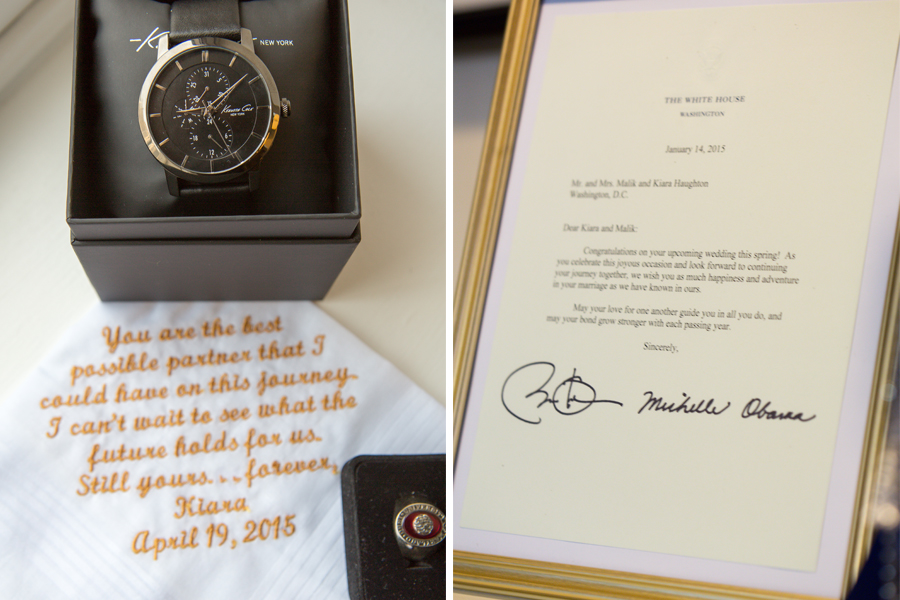 NEW YORK
KENNETH COLE
NEW YORK
31
You are the best
possible partner that I
could have on this journey.
I can't wait to see what the
future holds for us.
Still yours. . . forever,
Kiara
April 19, 2015
THE WHITE HOUSE
WASHINGTON
January 14, 2015
Mr. and Mrs. Malik and Kiara Haughton
Washington, D.C.
Dear Kiara and Malik:
Congratulations on your upcoming wedding this spring! As
you celebrate this joyous occasion and look forward to continuing
your journey together, we wish you as much happiness and adventure
in your marriage as we have known in ours.
May your love for one another guide you in all you do, and
may your bond grow stronger with each passing year.
Sincerely,
Michelle Obama